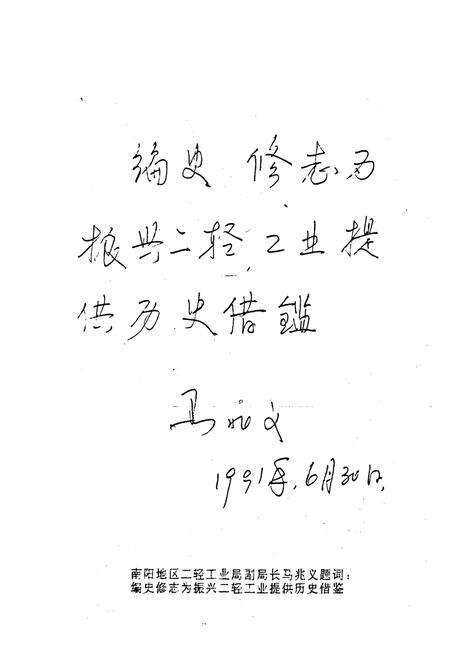 编史 修志为
振兴二轻工业提
供历史借鑑
马兆义
1991年.6月30日.
南阳地区二轻工业局副局长马兆义题词:
编史修志为振兴二轻工业提供历史借鉴